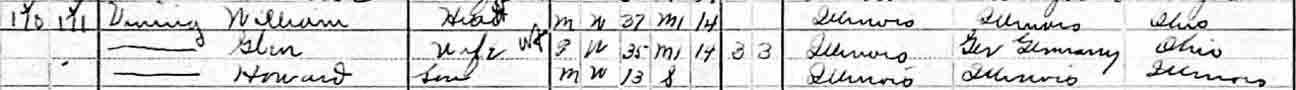 170 171 Vining William Head M W 37 M1 14 Illinois Illinois Ohio
Wife F W 35 M1 14 3 3 Illinois Ger Germany Ohio
Howard Son M W 13 S Illinois Illinois Illinois